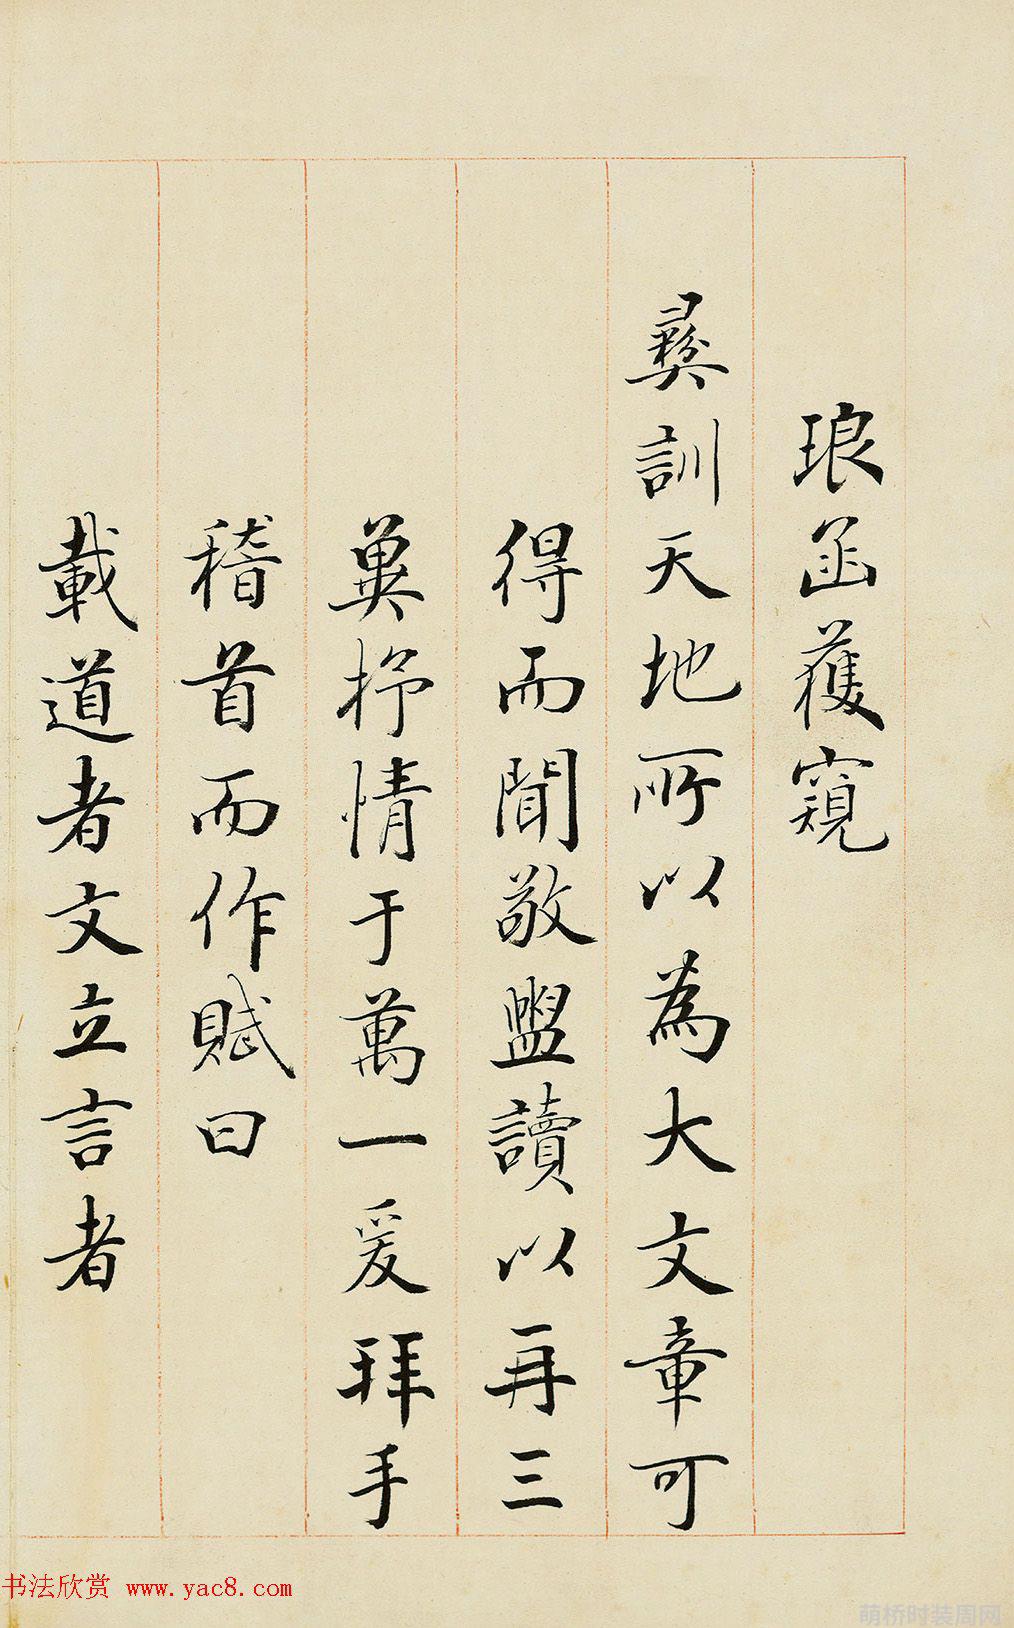 琅函獲窺
彝訓天地所以為大文章可
得而聞敬盥讀以再三
冀抒情于萬一爰拜手
稽首而作賦曰
載道者文立言者
书法欣赏 www.yac8.com
萌桥时装周网